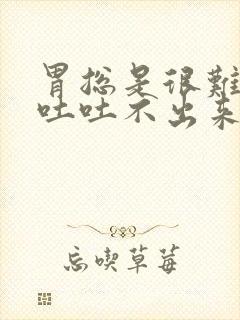 胃总是很難
吐吐不出来
忘喫草莓